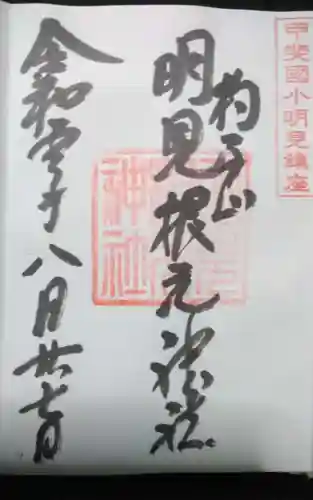 甲斐國小明見鎮座
杓子山
明見根元神社
神社
令和 八月廿七日